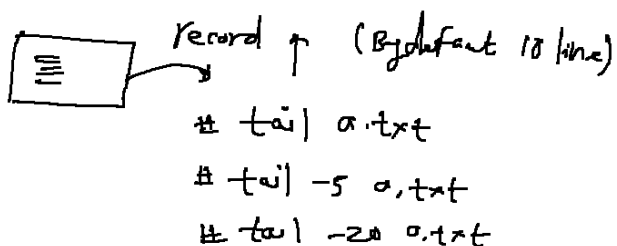 record ↑ (By default 10 line)
# tail a.txt
# tail -5 a.txt
# tail -20 a.txt